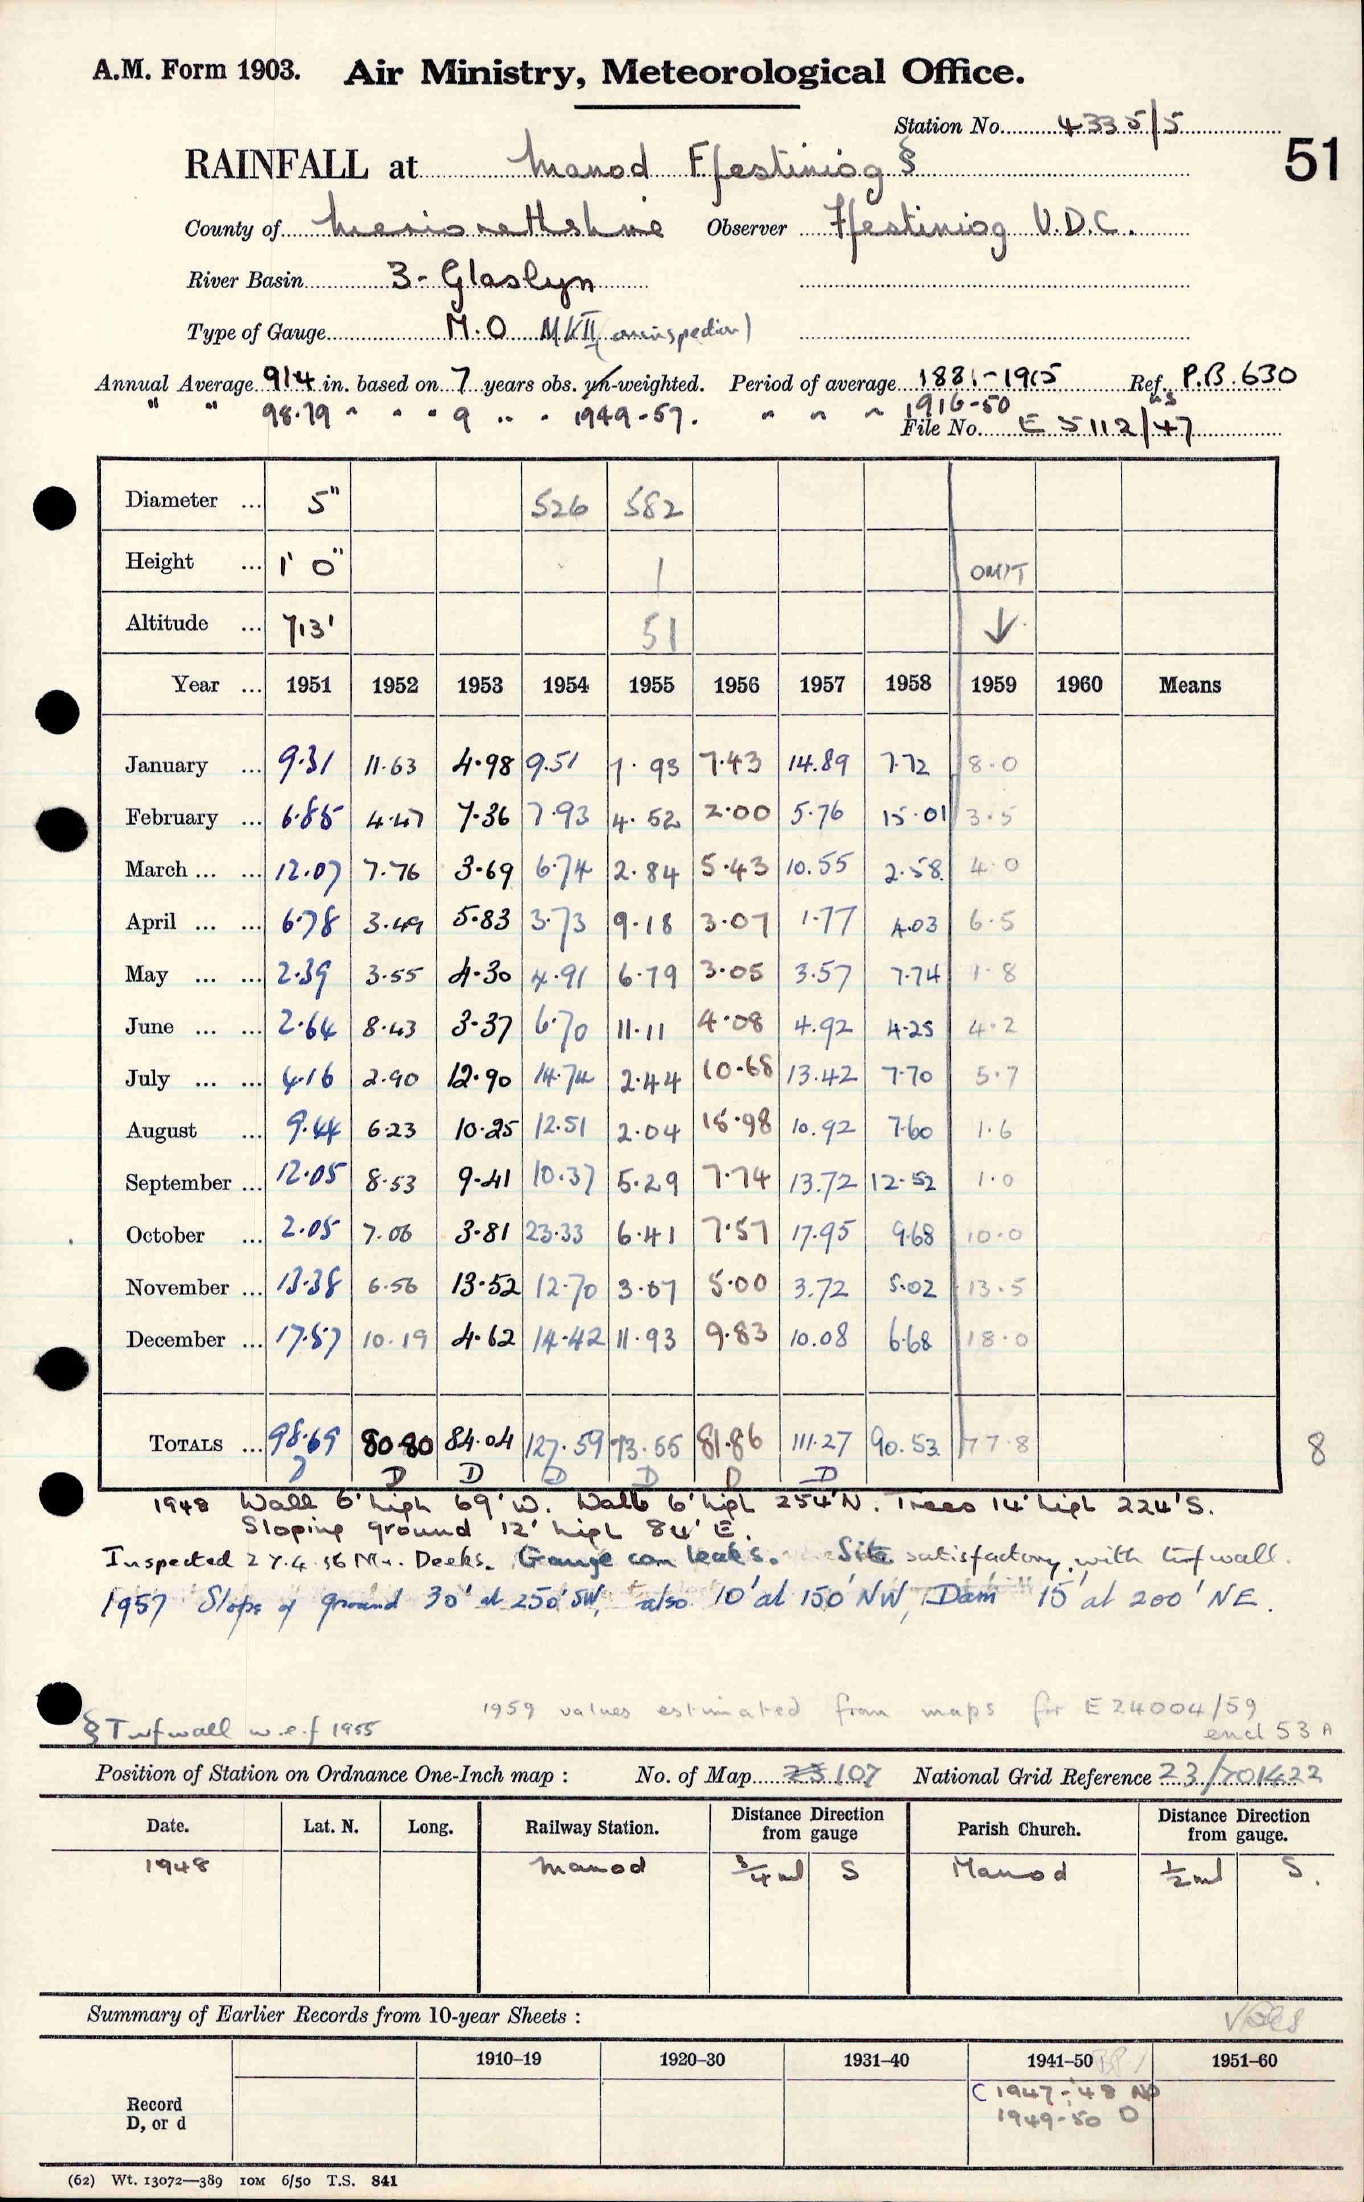 A.M. Form 1903. Air Ministry, Meteorological Office.
Station No. 4335/5
51
RAINFALL at Manod Ffestiniog §
County of Merionethshire Observer Ffestiniog U.D.C.
River Basin 3 - Glaslyn
Type of Gauge M.O MKII (on inspection)
Annual Average 91.4 in. based on 7 years obs. un-weighted. Period of average 1881-1915 Ref. P.B. 630
" " 98.79 " " " 9 " " 1949-57. " " " 1916-50
File No. E 5112/47
Diameter ... 5" 526 582
Height ... 1' 0" 1 OMIT
Altitude ... 713' 51 ↓
Year ... 1951 1952 1953 1954 1955 1956 1957 1958 1959 1960 Means
January ... 9.31 11.63 4.98 9.51 7.93 7.43 14.89 7.72 8.0
February ... 6.85 4.47 7.36 7.93 4.52 2.00 5.76 15.01 3.5
March ... ... 12.07 7.76 3.69 6.74 2.84 5.43 10.55 2.58 4.0
April ... ... 6.78 3.49 5.83 3.73 9.18 3.07 1.77 4.03 6.5
May ... ... 2.39 3.55 4.30 4.91 6.79 3.05 3.57 7.74 1.8
June ... ... 2.64 8.43 3.37 6.70 11.11 4.08 4.92 4.25 4.2
July ... ... 4.16 2.90 12.90 14.74 2.44 10.68 13.42 7.70 5.7
August ... 9.44 6.23 10.25 12.51 2.04 15.98 10.92 7.60 1.6
September ... 12.05 8.53 9.41 10.37 5.29 7.74 13.72 12.52 1.0
October ... 2.05 7.06 3.81 23.33 6.41 7.57 17.95 9.68 10.0
November ... 13.38 6.56 13.52 12.70 3.07 5.00 3.72 5.02 13.5
December ... 17.57 10.19 4.62 14.42 11.93 9.83 10.08 6.68 18.0
TOTALS ... 98.69 80.80 84.04 127.59 73.55 81.86 111.27 90.53 77.8
8
D D D D D D D
1948 Wall 6' high 69' W. Walls 6' high 254' N. Trees 14' high 224' S.
Sloping ground 12' high 84' E.
Inspected 27.4.56 Mr. Deeks. Gauge can leaks. Site satisfactory with turfwall.
1957 Slope of ground 30' at 250' SW, also 10' at 150' NW, Dam 15' at 200' NE.
1959 values estimated from maps for E 24004/59
encl 53 A
§ Turfwall w.e.f 1955
Position of Station on Ordnance One-Inch map : No. of Map 107 National Grid Reference 23/701422
Date. Lat. N. Long. Railway Station. Distance Direction from gauge Parish Church. Distance Direction from gauge.
1948 Manod 3/4 ml S Manod 1/2 ml S.
Summary of Earlier Records from 10-year Sheets :
1910–19 1920–30 1931–40 1941–50 1951–60
Record
D, or d
C 1947-48 ND
1949-50 D
(62) Wt. 13072—389 10M 6/50 T.S. 841